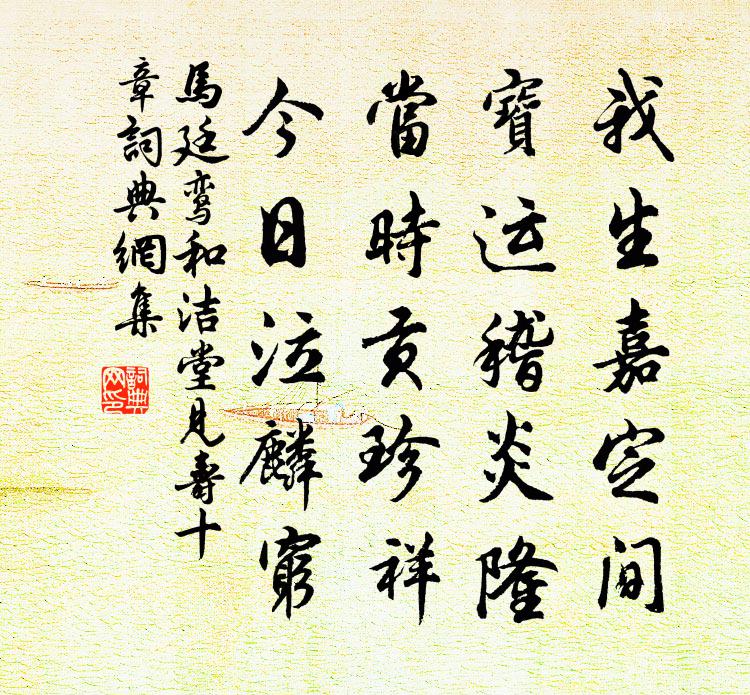 我生嘉定间
寶运稽炎隆
當時贡珍祥
今日泣麟窮
馬廷鸾和洁堂見壽十
章詞典網集
詞典网印